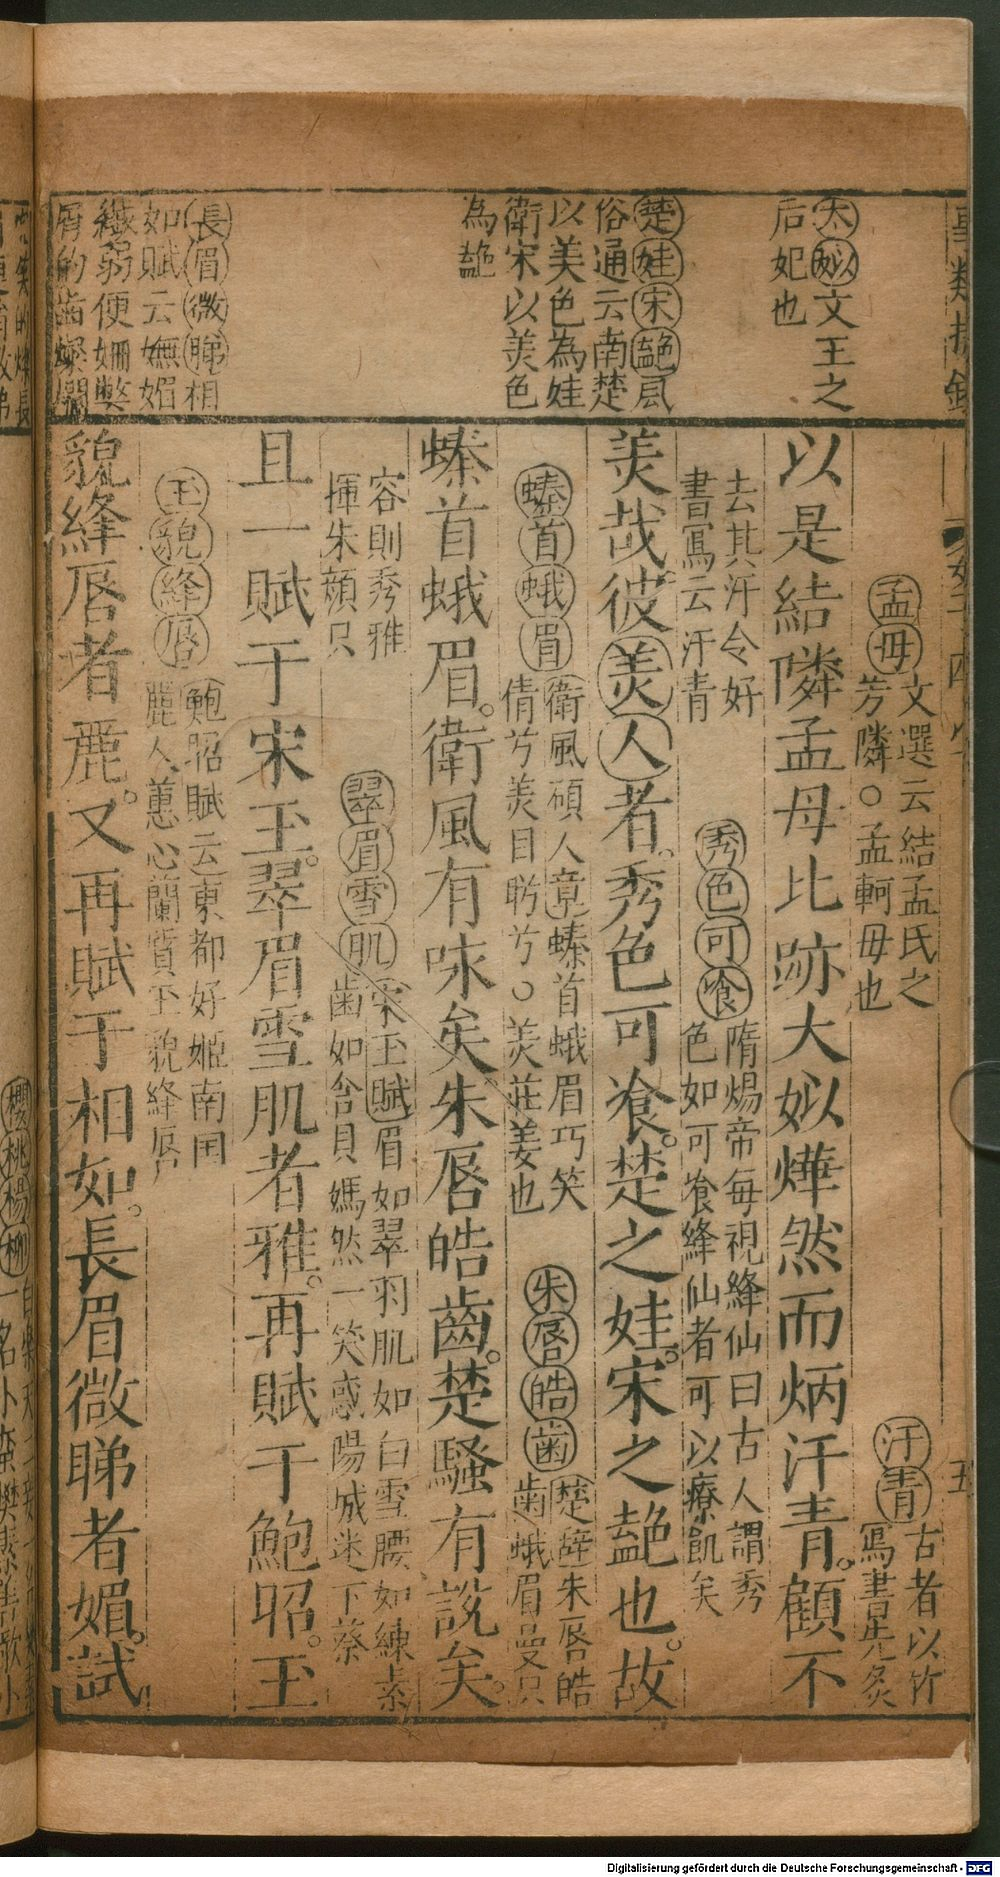 太姒文王之
后妃也
楚娃宋䶊風
俗通云南楚
以美色為娃
衛宋以美色
為䶊
長眉微睇相
如賦云嫵媚
纎弱便姍嫳
屑的齒燦爛
孟母
文選云結孟氏之
芳隣○孟軻母也
汗青
古者以竹
寫書先炙
以是結隣孟母比跡大姒燁然而炳汗青顧不
去其汗令好
書寫云汗青
秀色可飡
隋煬帝每視絳仙曰古人謂秀
色如可飡絳仙者可以療飢矣
美哉彼美人者秀色可飡楚之娃宋之䶊也故
螓首蛾眉
衛風碩人章螓首蛾眉巧笑
倩兮美目盻兮○美莊姜也
朱唇皓齒
楚辞朱唇皓
齒蛾眉曼只
螓首蛾眉衛風有咏矣朱唇皓齒楚騷有說矣
容則秀雅
揮朱顏只
翠眉雪肌
宋玉賦眉如翠羽肌如白雪腰如練素
齒如含貝嫣然一笑惑陽城迷下蔡
且一賦于宋玉翠眉雪肌者雅再賦于鮑昭玉
玉貌絳唇
鮑昭賦云東都好姬南国
麗人蕙心蘭質玉貌絳唇
貌絳唇者麗又再賦于相如長眉微睇者媚試
櫻桃楊柳
Digitalisierung gefördert durch die Deutsche Forschungsgemeinschaft - DFG